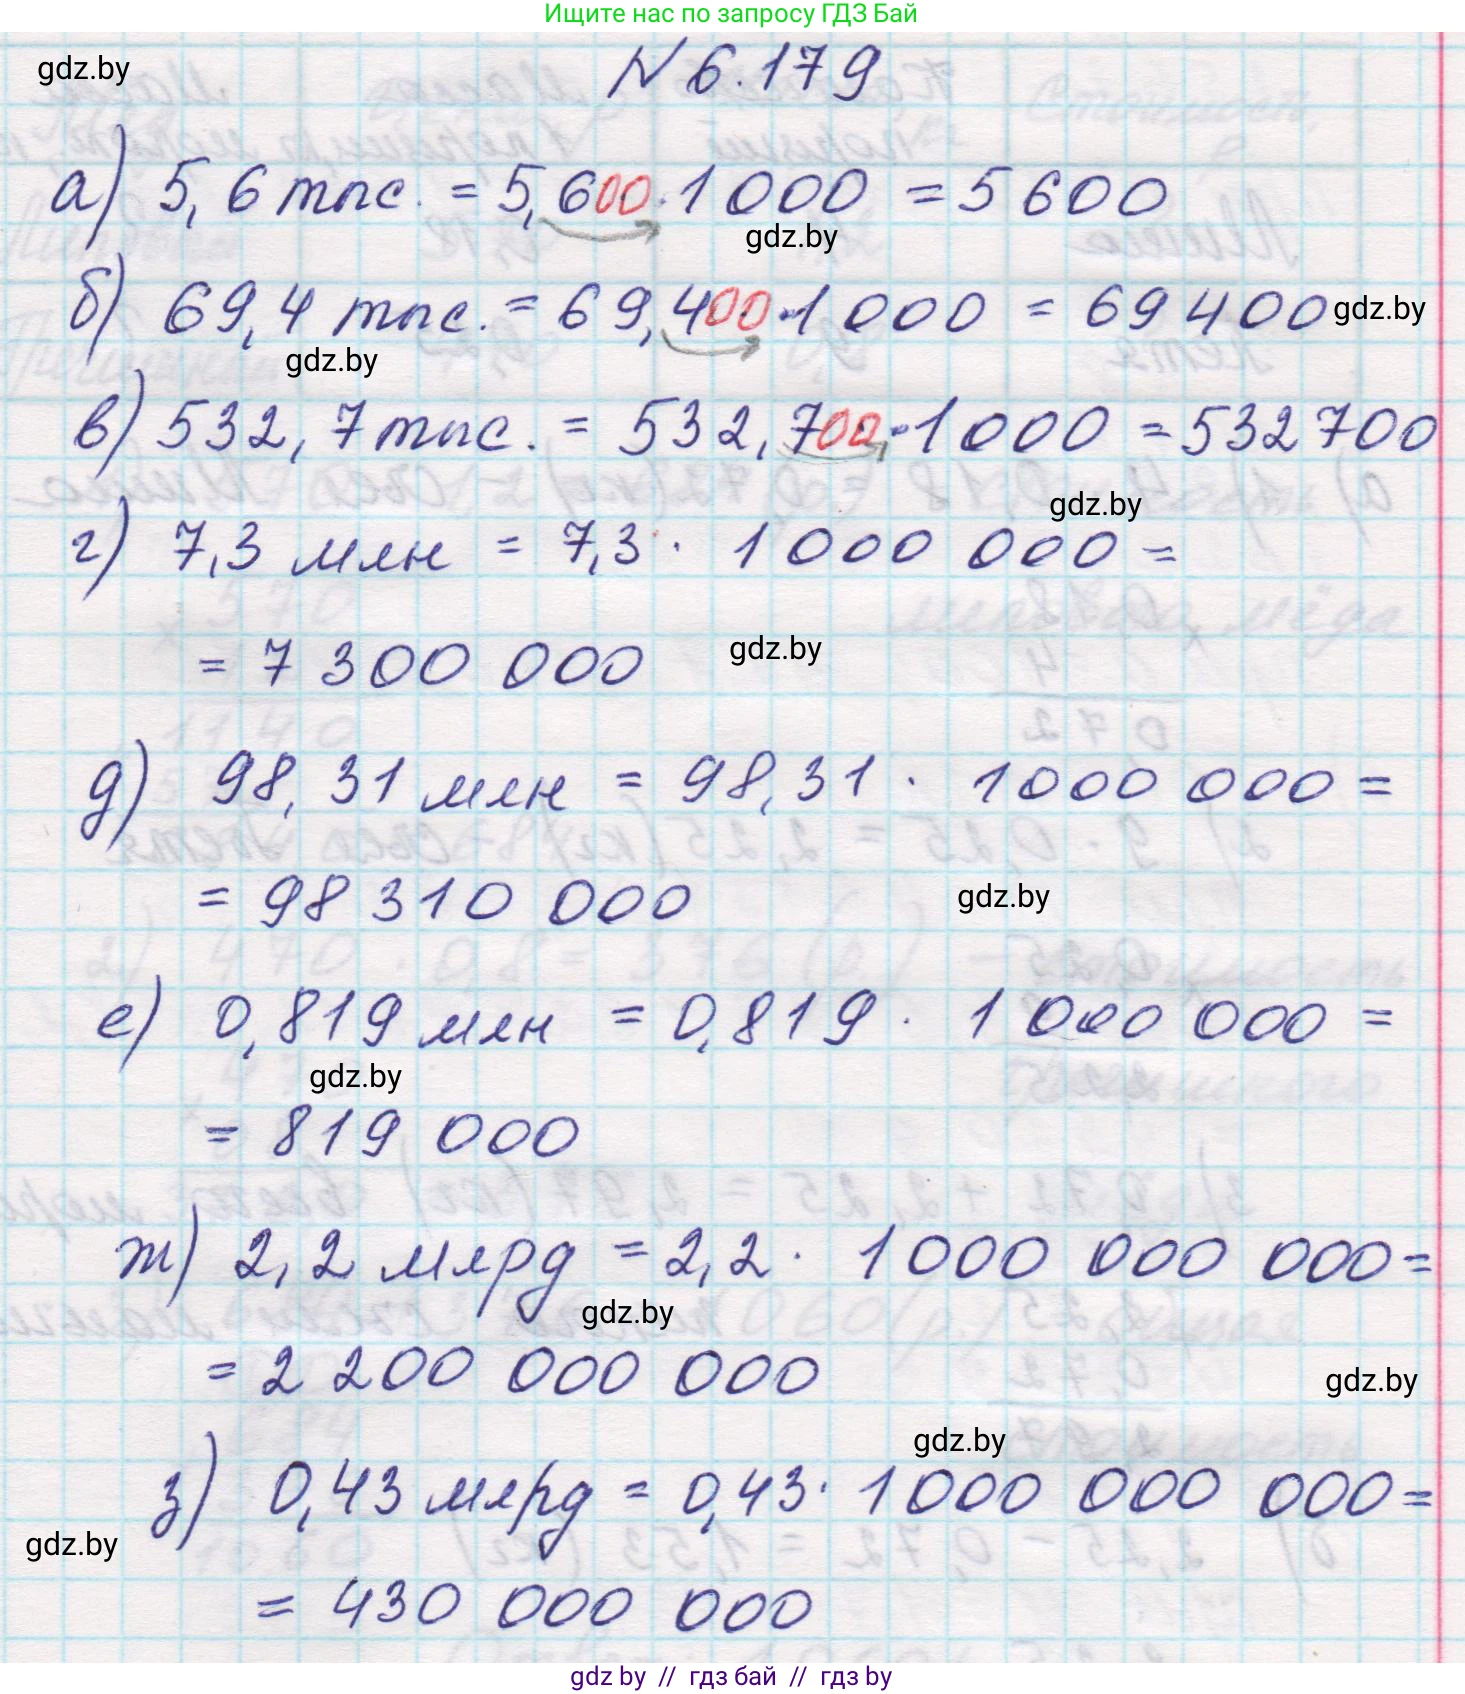 Ищите нас по запросу ГДЗ Бай
gdz.by
№ 6.179
а) 5,6 тыс. = 5,600·1000 = 5600
gdz.by
б) 69,4 тыс. = 69,400·1000 = 69400
gdz.by
gdz.by
в) 532,7 тыс. = 532,700·1000 = 532700
gdz.by
г) 7,3 млн = 7,3 · 1000 000 =
= 7 300 000
gdz.by
д) 98,31 млн = 98,31 · 1000 000 =
= 98 310 000
gdz.by
е) 0,819 млн = 0,819 · 1 000 000 =
gdz.by
= 819 000
ж) 2,2 млрд = 2,2 · 1000 000 000 =
gdz.by
= 2 200 000 000
gdz.by
gdz.by
з) 0,43 млрд = 0,43 · 1000 000 000 =
gdz.by
= 430 000 000
gdz by // гдз бай // гдз by